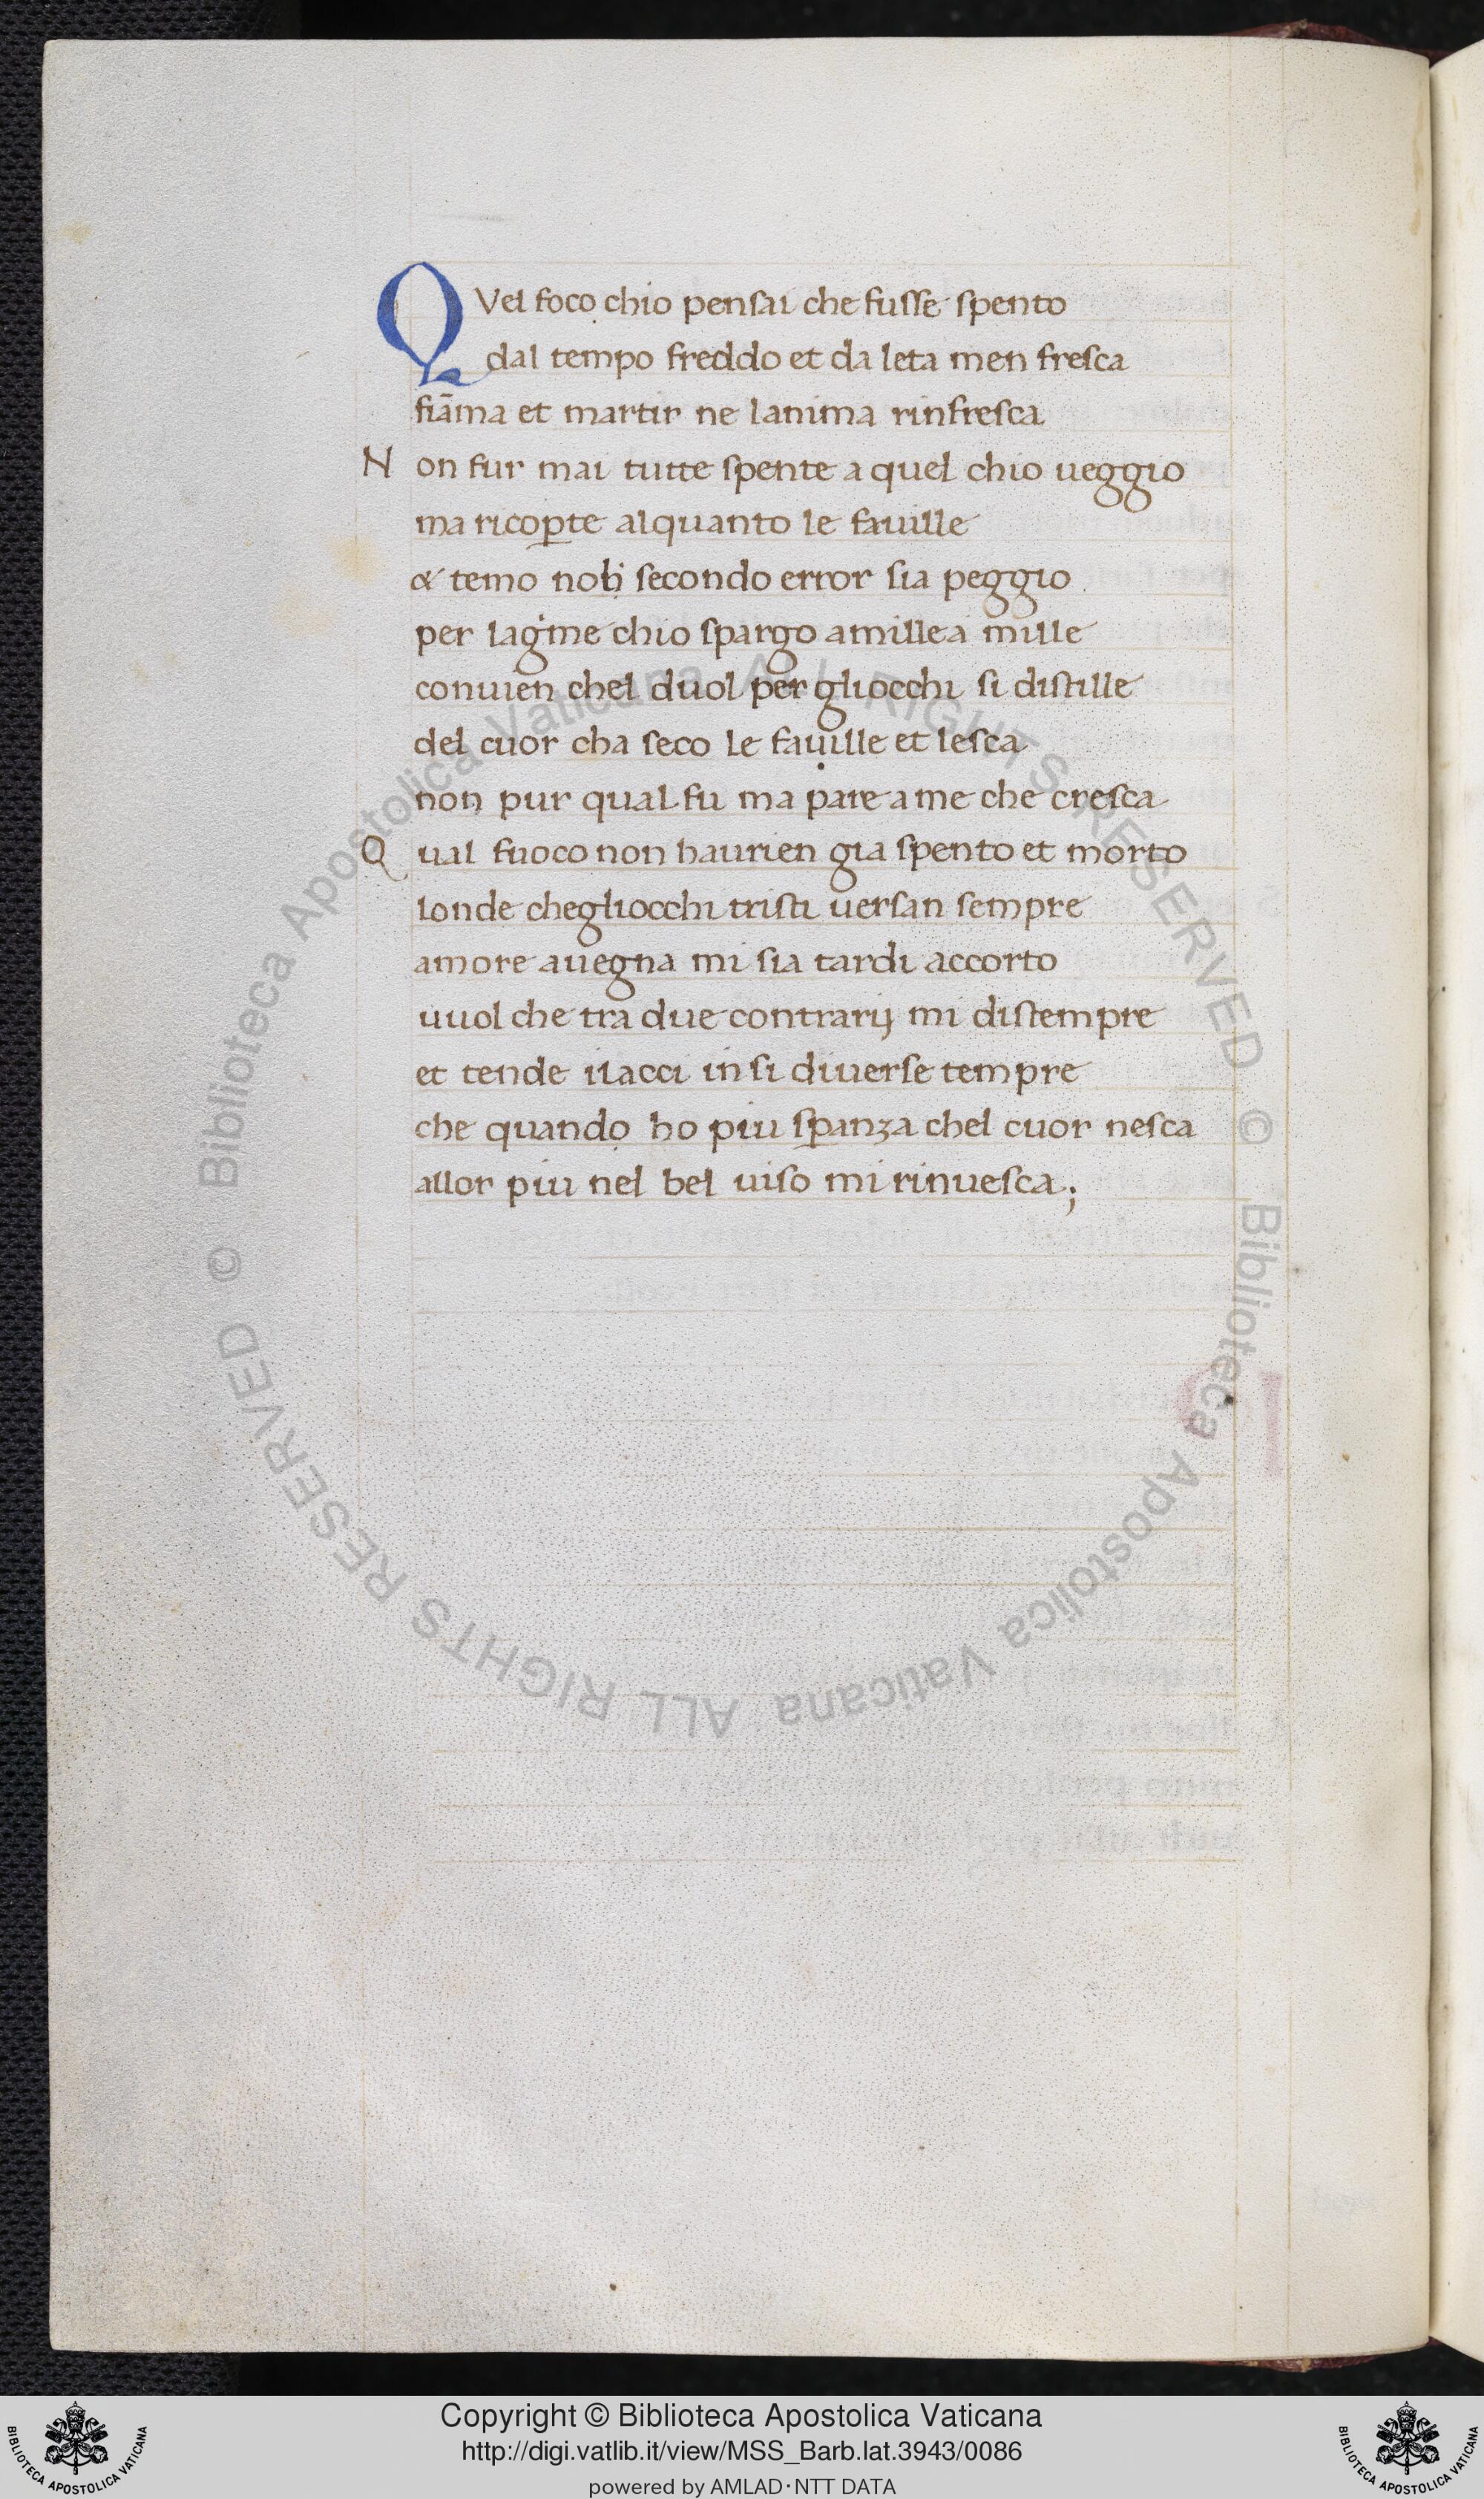 QVel foco chio pensai che fusse spento
dal tempo freddo et da leta men fresca
fiāma et martir ne lanima rinfresca
Non fur mai tutte spente a quel chio ueggio
ma ricoꝑte alquanto le fauille
& temo nol secondo error sia peggio
per lagme chio spargo a mille a mille
conuien chel duol per gliocchi si distille
del cuor cha seco le fauille et lesca
non pur qual fu ma pare a me che cresca
Qual fuoco non haurien gia spento et morto
londe che gliocchi tristi uersan sempre
amore auegna mi sia tardi accorto
uuol che tra due contrarij mi distempre
et tende ilacci in si diuerse tempre
che quando ho piu sꝑanza chel cuor nesca
allor piu nel bel uiso mi rinuesca;
© Biblioteca Apostolica Vaticana ALL RIGHTS RESERVED © Biblioteca Apostolica Vaticana ALL RIGHTS RESERVED
Copyright © Biblioteca Apostolica Vaticana
http://digi.vatlib.it/view/MSS_Barb.lat.3943/0086
powered by AMLAD·NTT DATA
BIBLIOTECA APOSTOLICA VATICANA
BIBLIOTECA APOSTOLICA VATICANA